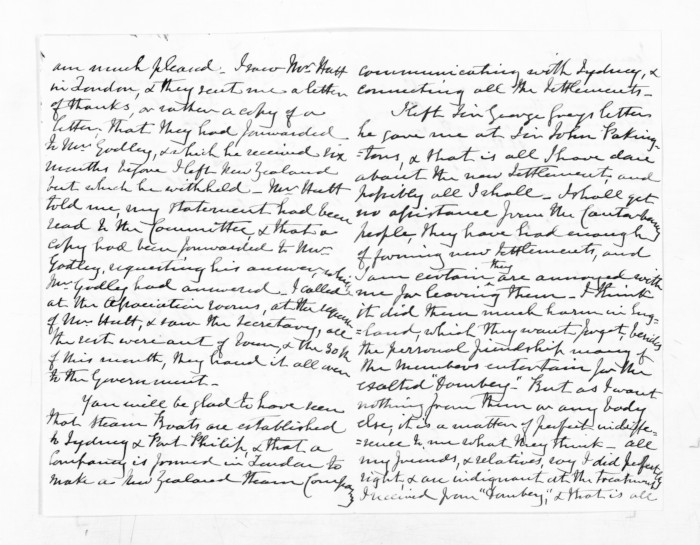 am much pleased - I saw Mr. Hutt
in London, & they sent me a letter
of thanks, or rather a copy of a
letter, that they had forwarded
to Mr. Godley, & which he received six
months before I left New Zealand
but which he withheld - Mr. Hutt
told me, my statement had been
read to the Committee, & that a
copy had been forwarded to Mr.
Godley, requesting his answer, which
Mr. Godley had answered - I called
at the Association rooms, at the request
of Mr. Hutt, & saw the Secretary, all
the rest were out of Town, & the 30th
of this month, they hand it all over
to the Government -
You will be glad to have seen
that Steam Boats are established
to Sydney & Port Philip, & that a
Company is formed in London to
make a New Zealand Steam Company
communicating with Sydney, &
connecting all the Settlements -
I left Sir George Grey's letters
he gave me at Sir John Paking-
=tons, & that is all I have done
about the new Settlement, and
possibly all I shall - I shall get
no assistance from the Canterbury
people, they have had enough
of forming new Settlements, and
I am certain they are annoyed with
me for leaving them - I think
it did them much harm in Eng-
=land, which they want, forget, besides
the personal friendship many of
the Members entertain for the
exalted "Dombey" - But as I want
nothing from them or any body
else, it is a matter of perfect indiffe-
=rence to me what they think - all
my friends, & relatives, say I did perfectly
right, & are indignant at the treatment
I received from "Dombey", & that is all